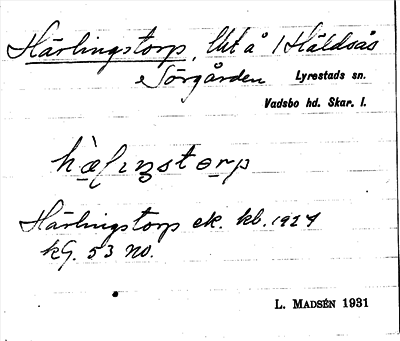 Härlingstorp, lht å /Håldsås
Sörgården Lyrestads sn.
Vadsbo hd. Skar. l.
Härlingstorp ek. kb. 1927
kG. 53 no.
L. MADSÉN 1931